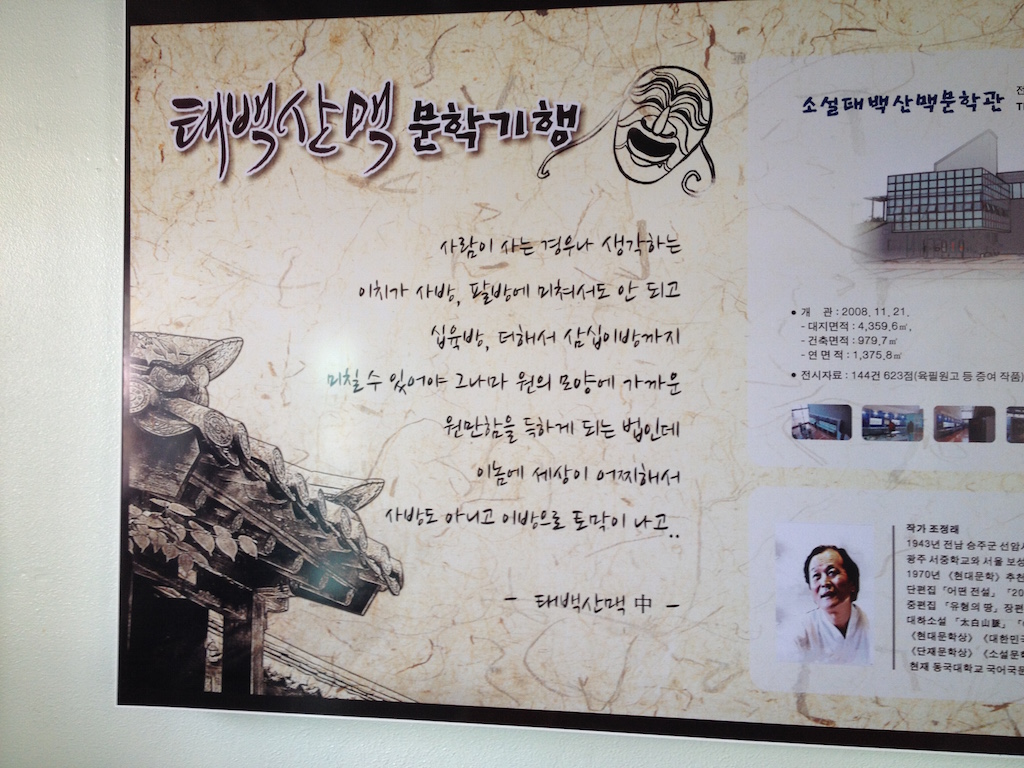 태백산맥 문학기행
사람이 사는 경우나 생각하는
이치가 사방, 팔방에 미쳐서도 안 되고
십육방, 더해서 삼십이방까지
미칠 수 있어야 그나마 원의 모양에 가까운
원만함을 득하게 되는 법인데
이놈에 세상이 어찌해서
사방도 아니고 이방으로 토막이 나고..
- 태백산맥 中 -
소설태백산맥문학관
● 개 관 : 2008. 11. 21.
- 대지면적 : 4,359.6㎡,
- 건축면적 : 979.7㎡
- 연 면 적 : 1,375.8㎡
● 전시자료 : 144건 623점(육필원고 등 증여 작품)
작가 조정래
1943년 전남 승주군 선암사
광주 서중학교와 서울 보성
1970년 《현대문학》 추천
단편집 「어떤 전설」 「20
중편집 「유형의 땅」 장편
대하소설 「太白山脈」
《현대문학상》 《대한민국
《단재문학상》 《소설문학
현재 동국대학교 국어국문